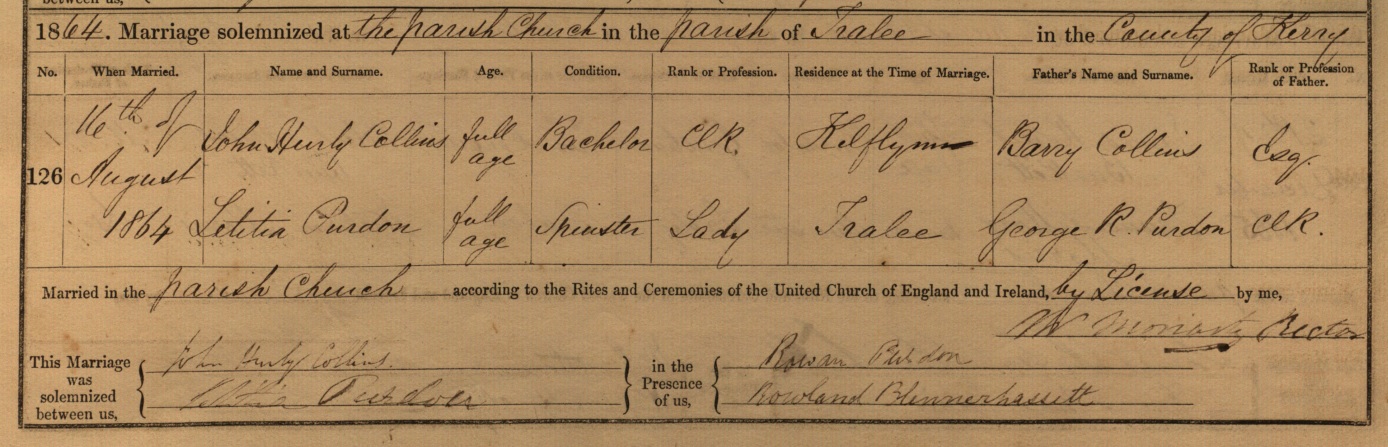 between us,
1864. Marriage solemnized at the parish Church in the parish of Tralee in the County of Kerry
No. When Married. Name and Surname. Age. Condition. Rank or Profession. Residence at the Time of Marriage. Father's Name and Surname. Rank or Profession of Father.
126 16th of August 1864
John Hurly Collins full age Bachelor Clk. Kilflynn Barry Collins Esq.
Letitia Purdon full age Spinster Lady Tralee George R. Purdon Clk.
Married in the parish Church according to the Rites and Ceremonies of the United Church of England and Ireland, by License by me,
Moriarty Rector
This Marriage was solemnized between us,
John Hurly Collins.
Letitia Purdon
in the Presence of us,
Rowan Purdon
Rowland Blennerhassett